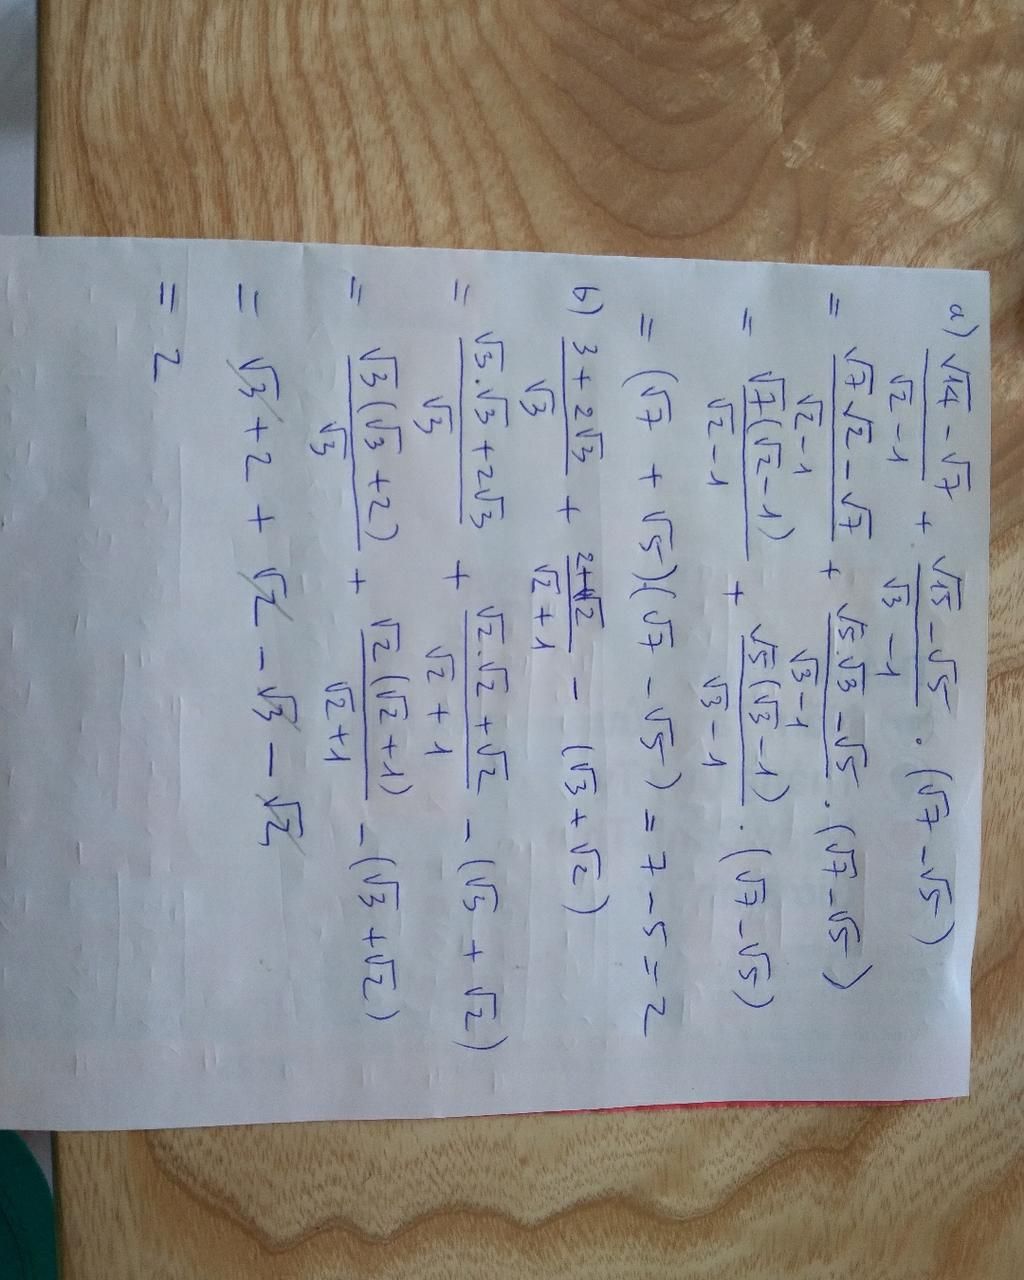 a) (√14 - √7)/(√2 - 1) + (√15 - √5)/(√3 - 1) . (√7 - √5)
= (√7 √2 - √7)/(√2 - 1) + (√5.√3 - √5)/(√3 - 1) . (√7 - √5)
= (√7 (√2 - 1))/(√2 - 1) + (√5 (√3 - 1))/(√3 - 1) . (√7 - √5)
= (√7 + √5)(√7 - √5) = 7 - 5 = 2
b) (3 + 2√3)/√3 + (2+√2)/(√2 + 1) - (√3 + √2)
= (√3.√3 + 2√3)/√3 + (√2.√2 + √2)/(√2 + 1) - (√3 + √2)
= (√3 (√3 + 2))/√3 + (√2 (√2 + 1))/(√2 + 1) - (√3 + √2)
= √3 + 2 + √2 - √3 - √2
= 2